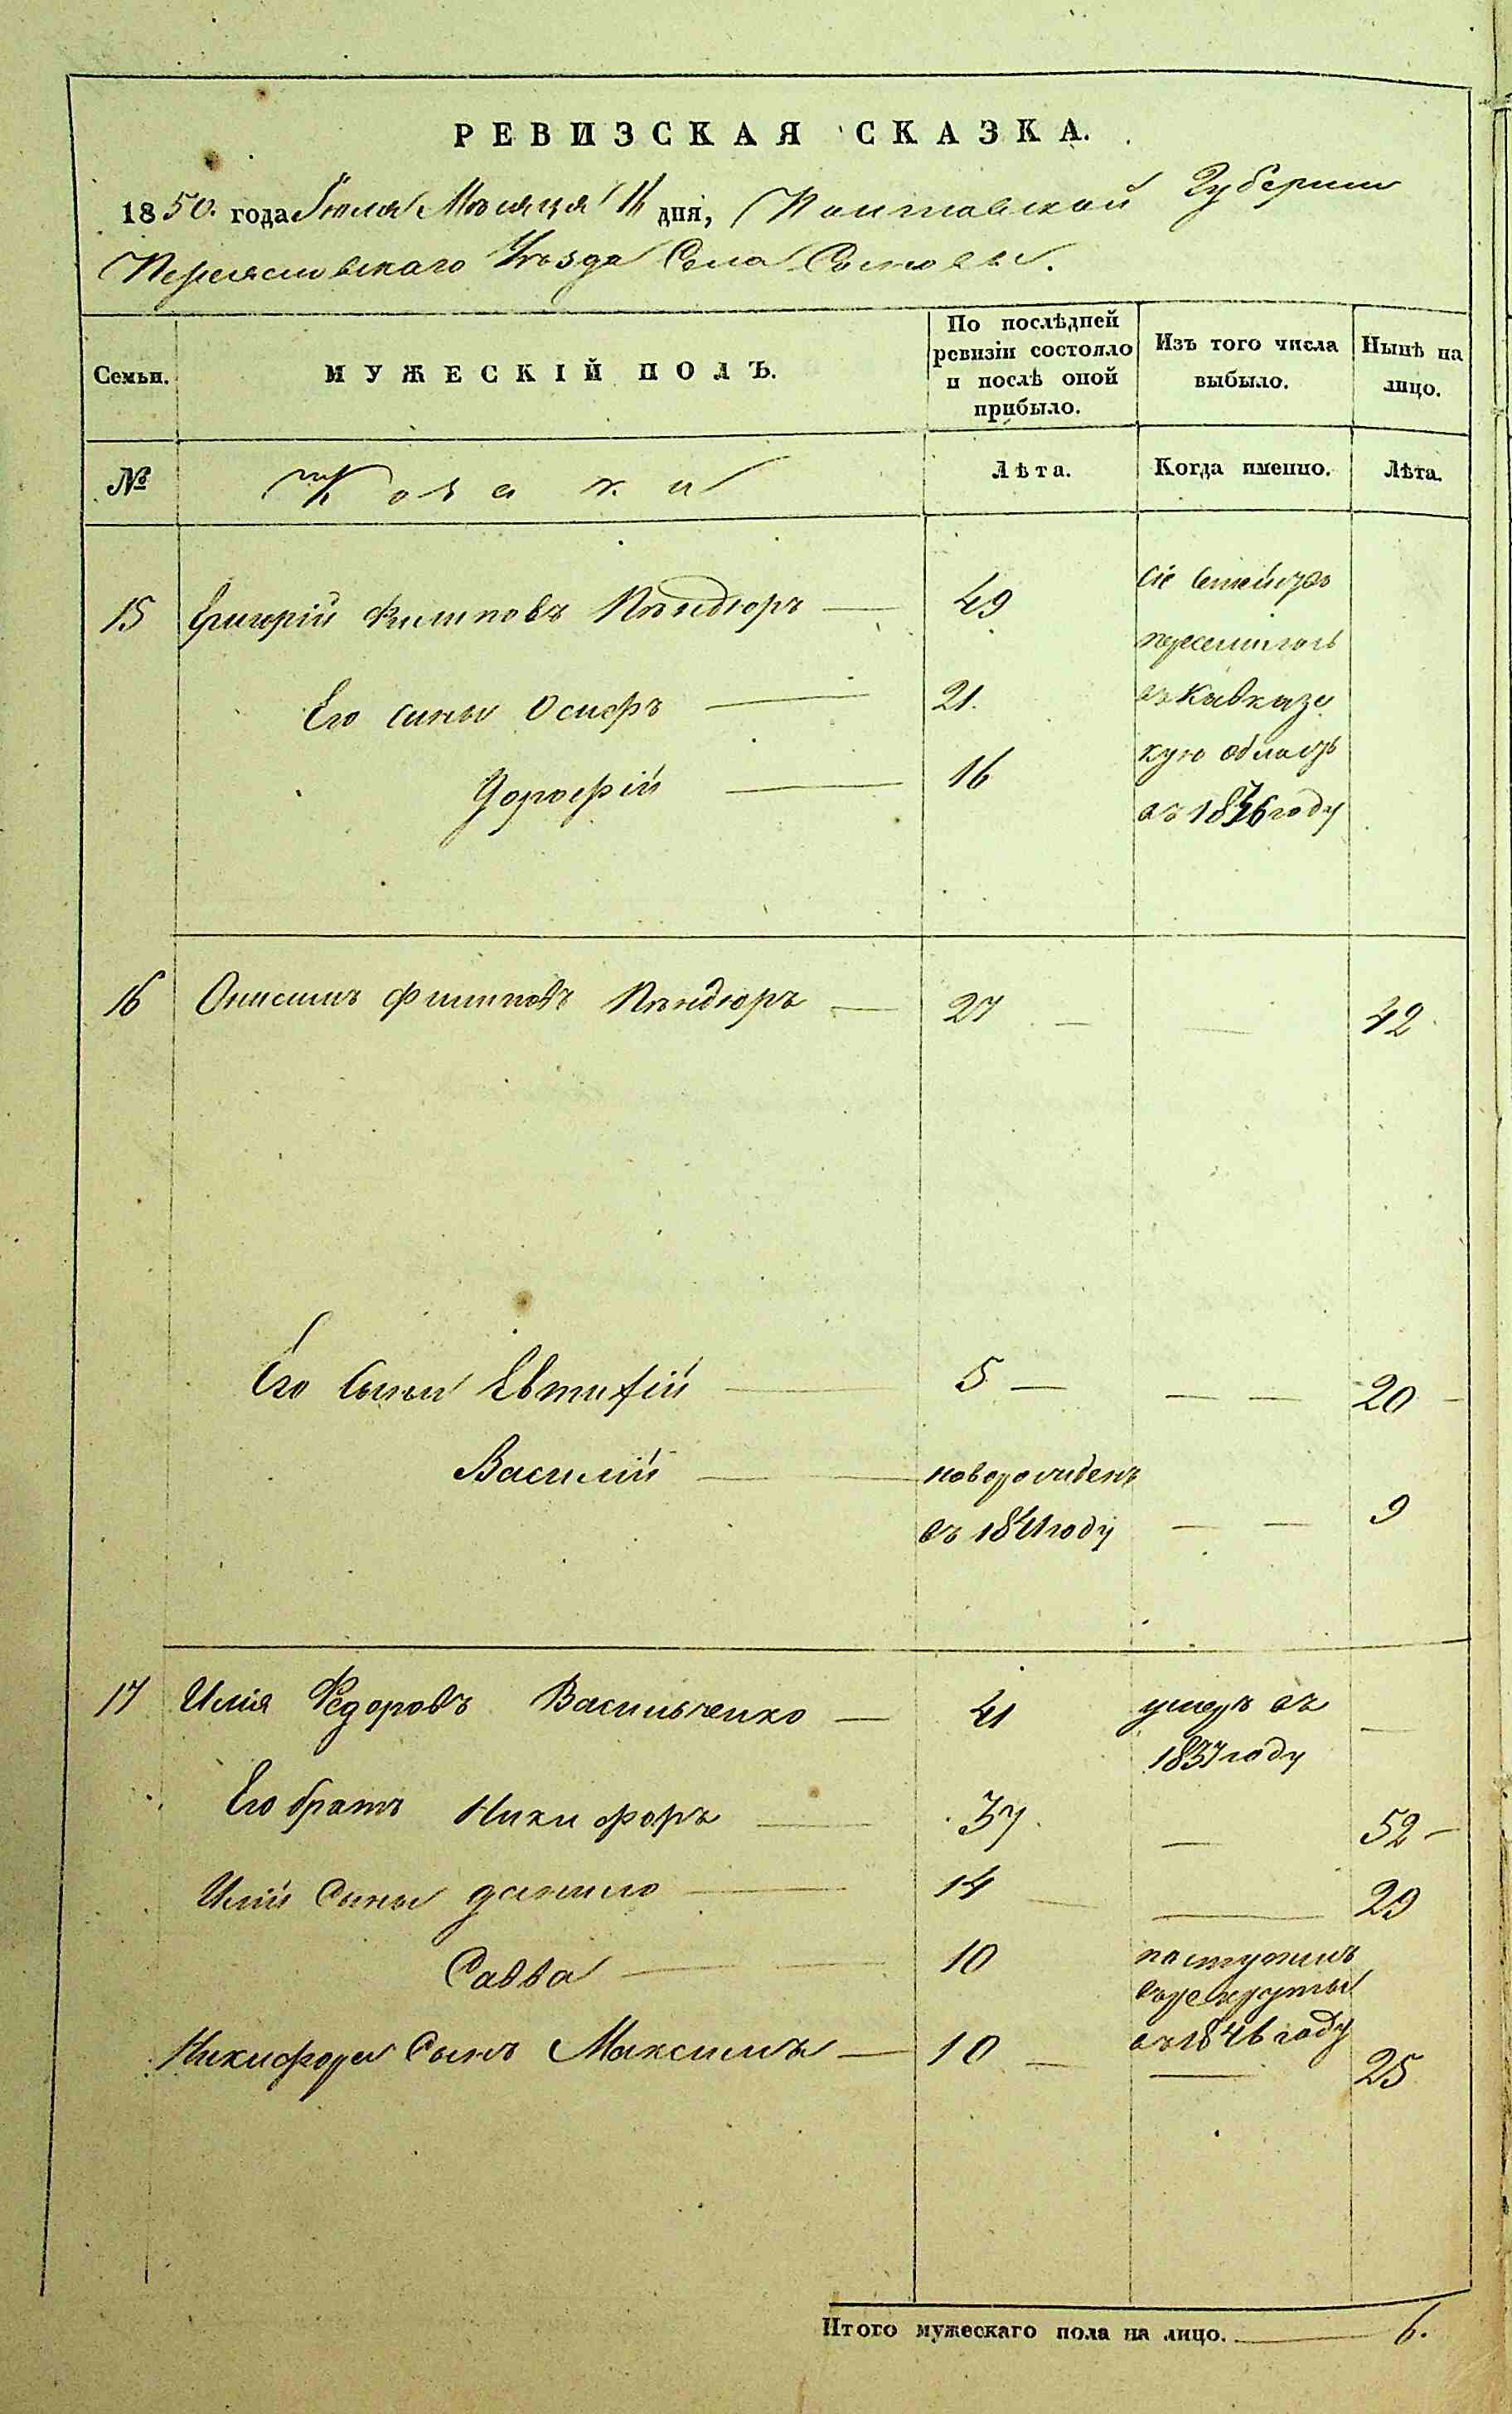 РЕВИЗСКАЯ СКАЗКА.
1850. года Іюля Мѣсяца 11 дня, Полтавской Губерніи
Переяславскаго Уѣзда Села Сосновы.
Семьи.
МУЖЕСКІЙ ПОЛЪ.
По послѣдней
ревизіи состояло
и послѣ оной
прибыло.
Изъ того числа
выбыло.
Нынѣ на
лицо.
№
Козаки
Лѣта.
Когда именно.
Лѣта.
15 Григорій Филиповъ Пѣндюръ — 49 сіе Семейство
переселилось
Его сины Осифъ — 21. въ Кавказс
Дорофій — 16 кую область
въ 1846 году
16 Онисимъ Филиповъ Пѣндюръ — 27 — — 42
Его Сыны Евтифій — 5 — — — 20 —
Василій — новорожденъ
въ 1841 году — — 9
17 Илія Федоровъ Васильченко — 41 умеръ въ —
1837 году
Его братъ Никифоръ — 37. — 52 —
Иліи Сины данило — 14 — — 29
Савва — 10 поступилъ
в рекруты
въ 1846 году
Никифора Сынъ Максимъ — 10 — — 25
Итого мужескаго пола на лицо. — 6.